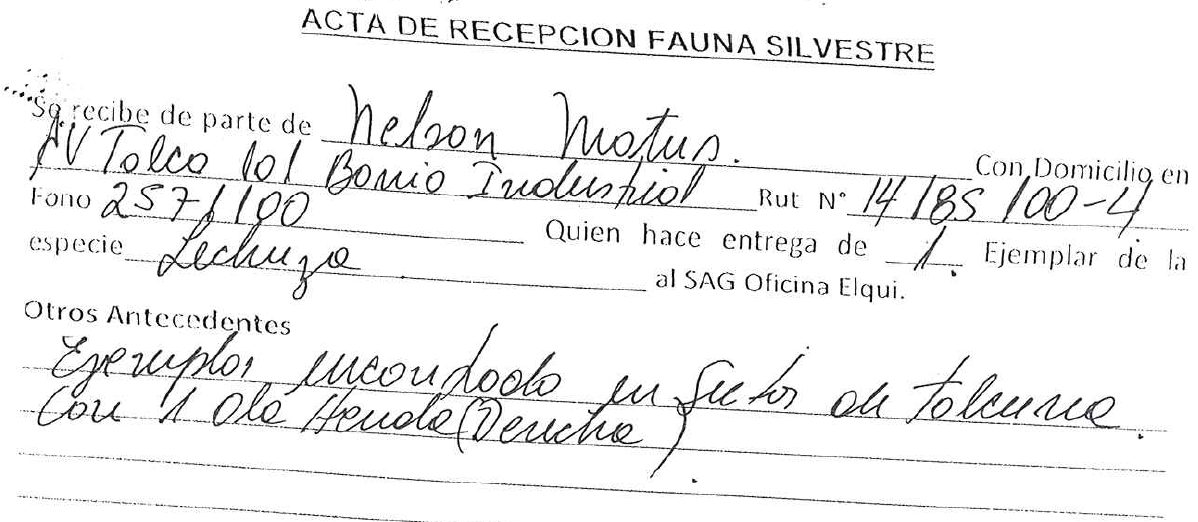 ACTA DE RECEPCION FAUNA SILVESTRE
Se recibe de parte de Nelson Matus. Con Domicilio en
AV Talca 101 Barrio Industrial Rut N° 14 185 100-4
Fono 2571100 Quien hace entrega de 1. Ejemplar de la
especie Lechuza al SAG Oficina Elqui.
Otros Antecedentes
Ejemplar encontrado en Sector de Talcuna.
Con 1 ala Herida (Derecha).